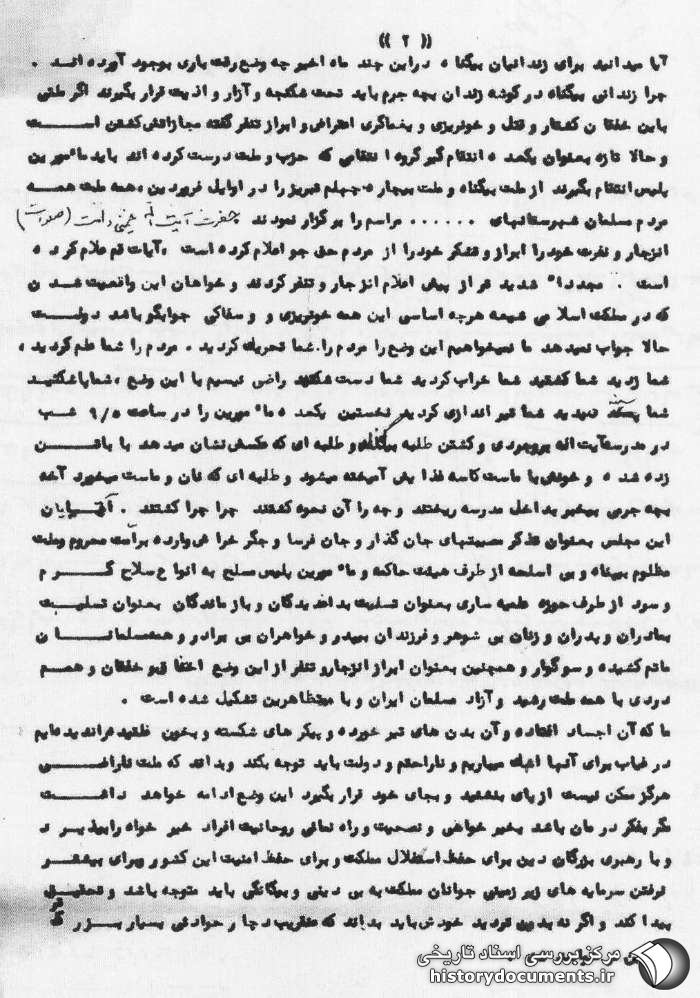 (( ۲ ))
آیا میدانید برای زندانیان بیگناه دراین چند ماه اخیر چه وضع رقت باری بوجود آورده اند .
چرا زندانی بیگناه در گوشه زندان بچه جرم باید تحت شکنجه و آزار و اذیت قرار بگیرند اگر ملتی
باین خفقان کشتار و قتل و خونریزی و یغماگری اعتراض و ابراز تنفر گفته مجازاتش کشتن است
و حالا تازه بعنوان یکعده انتقام گیر گروه انتقامی که حزب و ملت درست کرده اند باید مأمورین
پلیس انتقام بگیرند از ملت بیگناه و ملت بیچاره چهلم تبریز را در اوایل فروردین ، همه ملت همه
مردم مسلمان شهرستانهای ...... مراسم را برگزار نمودند حضرت آیت اله
انزجار و نفرت خود را ابراز و تشکر خود را از مردم حق جو اعلام کرده است ، آیات قم اعلام کرده
است . مجدداً شدید تر از پیش اعلام انزجار و تنفر کردند و خواهان این واقعیت شدن
که در مملکت اسلامی شیعه هرجه اساسی این همه خونریزی و و سفاکی جوابگو باشد دولت
حالا جواب نمیدهد ما نمیخواهیم این وضع را مردم را شما تحریک کردید . مردم را شما علم کردید ،
شما زدید شما کشتید شما خراب کردید شما دست شکنید راضی نیسیم با این وضع ، شما باشکنید
شما نمیدید شما تیر اندازی کردید نخستین یکعده مأمورین را در ساعت ۹/۵ شب
در مدرسه آیت اله بروجردی و کشتن طلبه بیگناه و طلبه ای که عکسش نشان میدهد با باتن
زده شده و خونش با ماست کاسه غذایش آمیخته میشود و طلبه ای که نان و ماست میخورد آخه
بچه جرمی بیخبر بداخل مدرسه ریختند و چه را آن نحوه کشتند چرا چرا کشتند . آقایان
این مجلس بعنوان تذکر مصیبتهای جان گداز و جان فرسا و جگر خراش وارده برامت محروم وملت
مظلوم بیپناه و بی اسلحه از طرف هیئت حاکمه و مأمورین پلیس مسلح به انواع سلاح گرم
و سرد از طرف حوزه علمیه ساری بعنوان تسلیت بداغدیدگان و بازماندگان بعنوان تسلیت
بمادران و پدران و زنان بی شوهر و فرزندان بیپدر و خواهران بی برادر و همسلمانان
ماتم کشیده و سوگوار و همچنین بعنوان ابراز انزجارو تنفر از این وضع اختفا و خفقان و هم
دردی با همه ملت رشید و آزاد مسلمان ایران و با متظاهرین تشکیل شده است .
ما که آن اجساد افتاده و آن بدن های تیر خورده و پیکر های شکسته و بخون غلتیده را ندیده ایم
در غیاب برای آنها اشک میباریم و ناراحتم و دولت باید توجه بکند و بداند که ملت ناراضی
هرگز ممکن نیست از پای بنشیند و بجای خود قرار بگیرد این وضع ادامه خواهد داشت
مگر بفکر درمان باشد بخیر خواهی و نصحیت و راه نمائی روحانیت افراد خیر خواه را بپذیر د
و با رهبری بزرگان دین برای حفظ استقلال مملکت و برای حفظ امنیت این کشور وبرای بیشتر
نرفتن سرمایه های زیر زمینی جوانان مملکت به بی دینی و بیگانگی باید متوجه باشد و تحقیق
پیدا کند و اگر نه بدون تردید خودش باید بداند که عنقریب دچار حوادثی بسیار بزرگ
مرکز بررسی اسناد تاریخی
historydocuments.ir